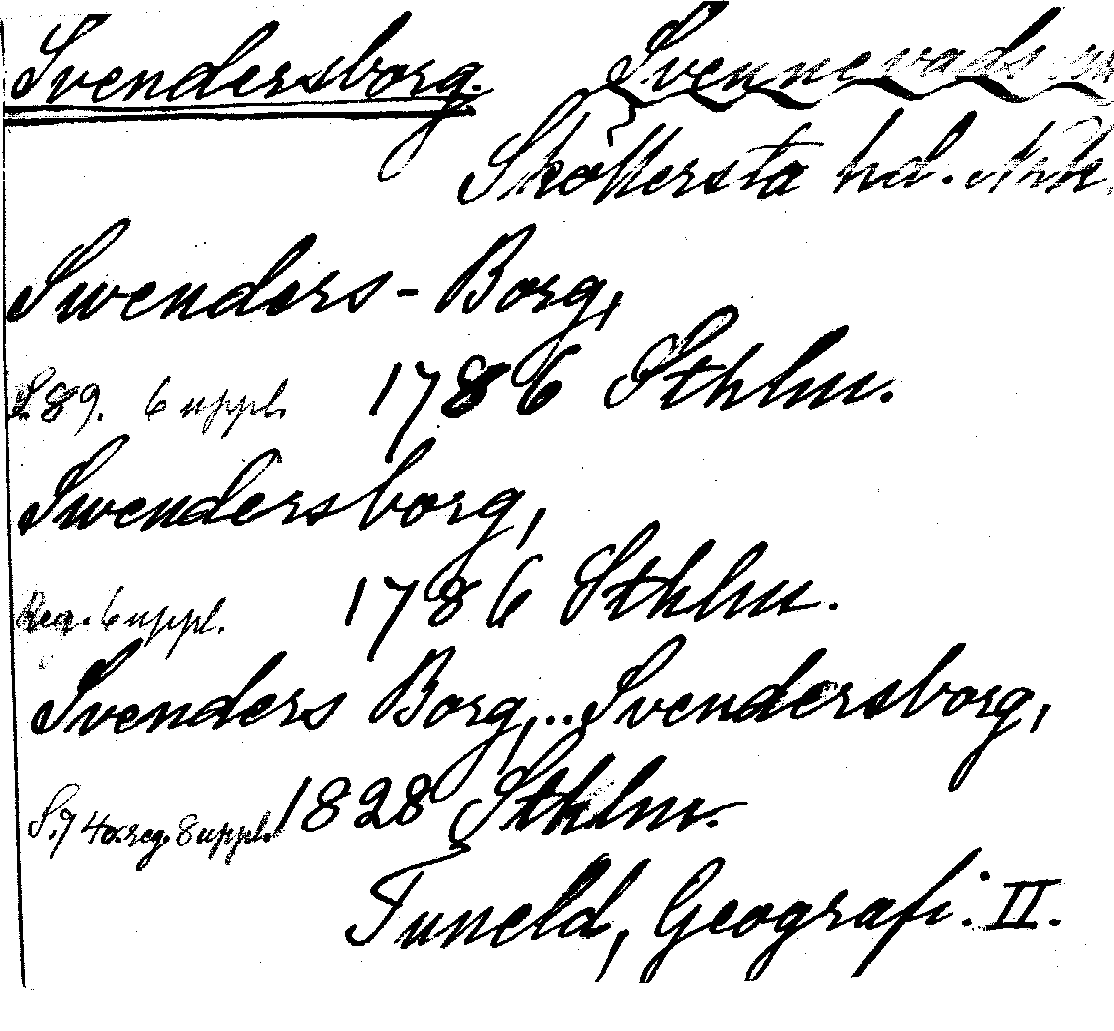 Svendersborg. Svennevads sn
Sköllersta hd. Nrke.
Swenders-Borg,
S. 89. 6 uppl. 1786 Sthlm.
Swendersborg,
Reg. 6 uppl. 1786 Sthlm.
Svenders Borg,.. Svendersborg,
S. 74 o. reg. 8 uppl. 1828 Sthlm.
Tuneld, Geografi. II.